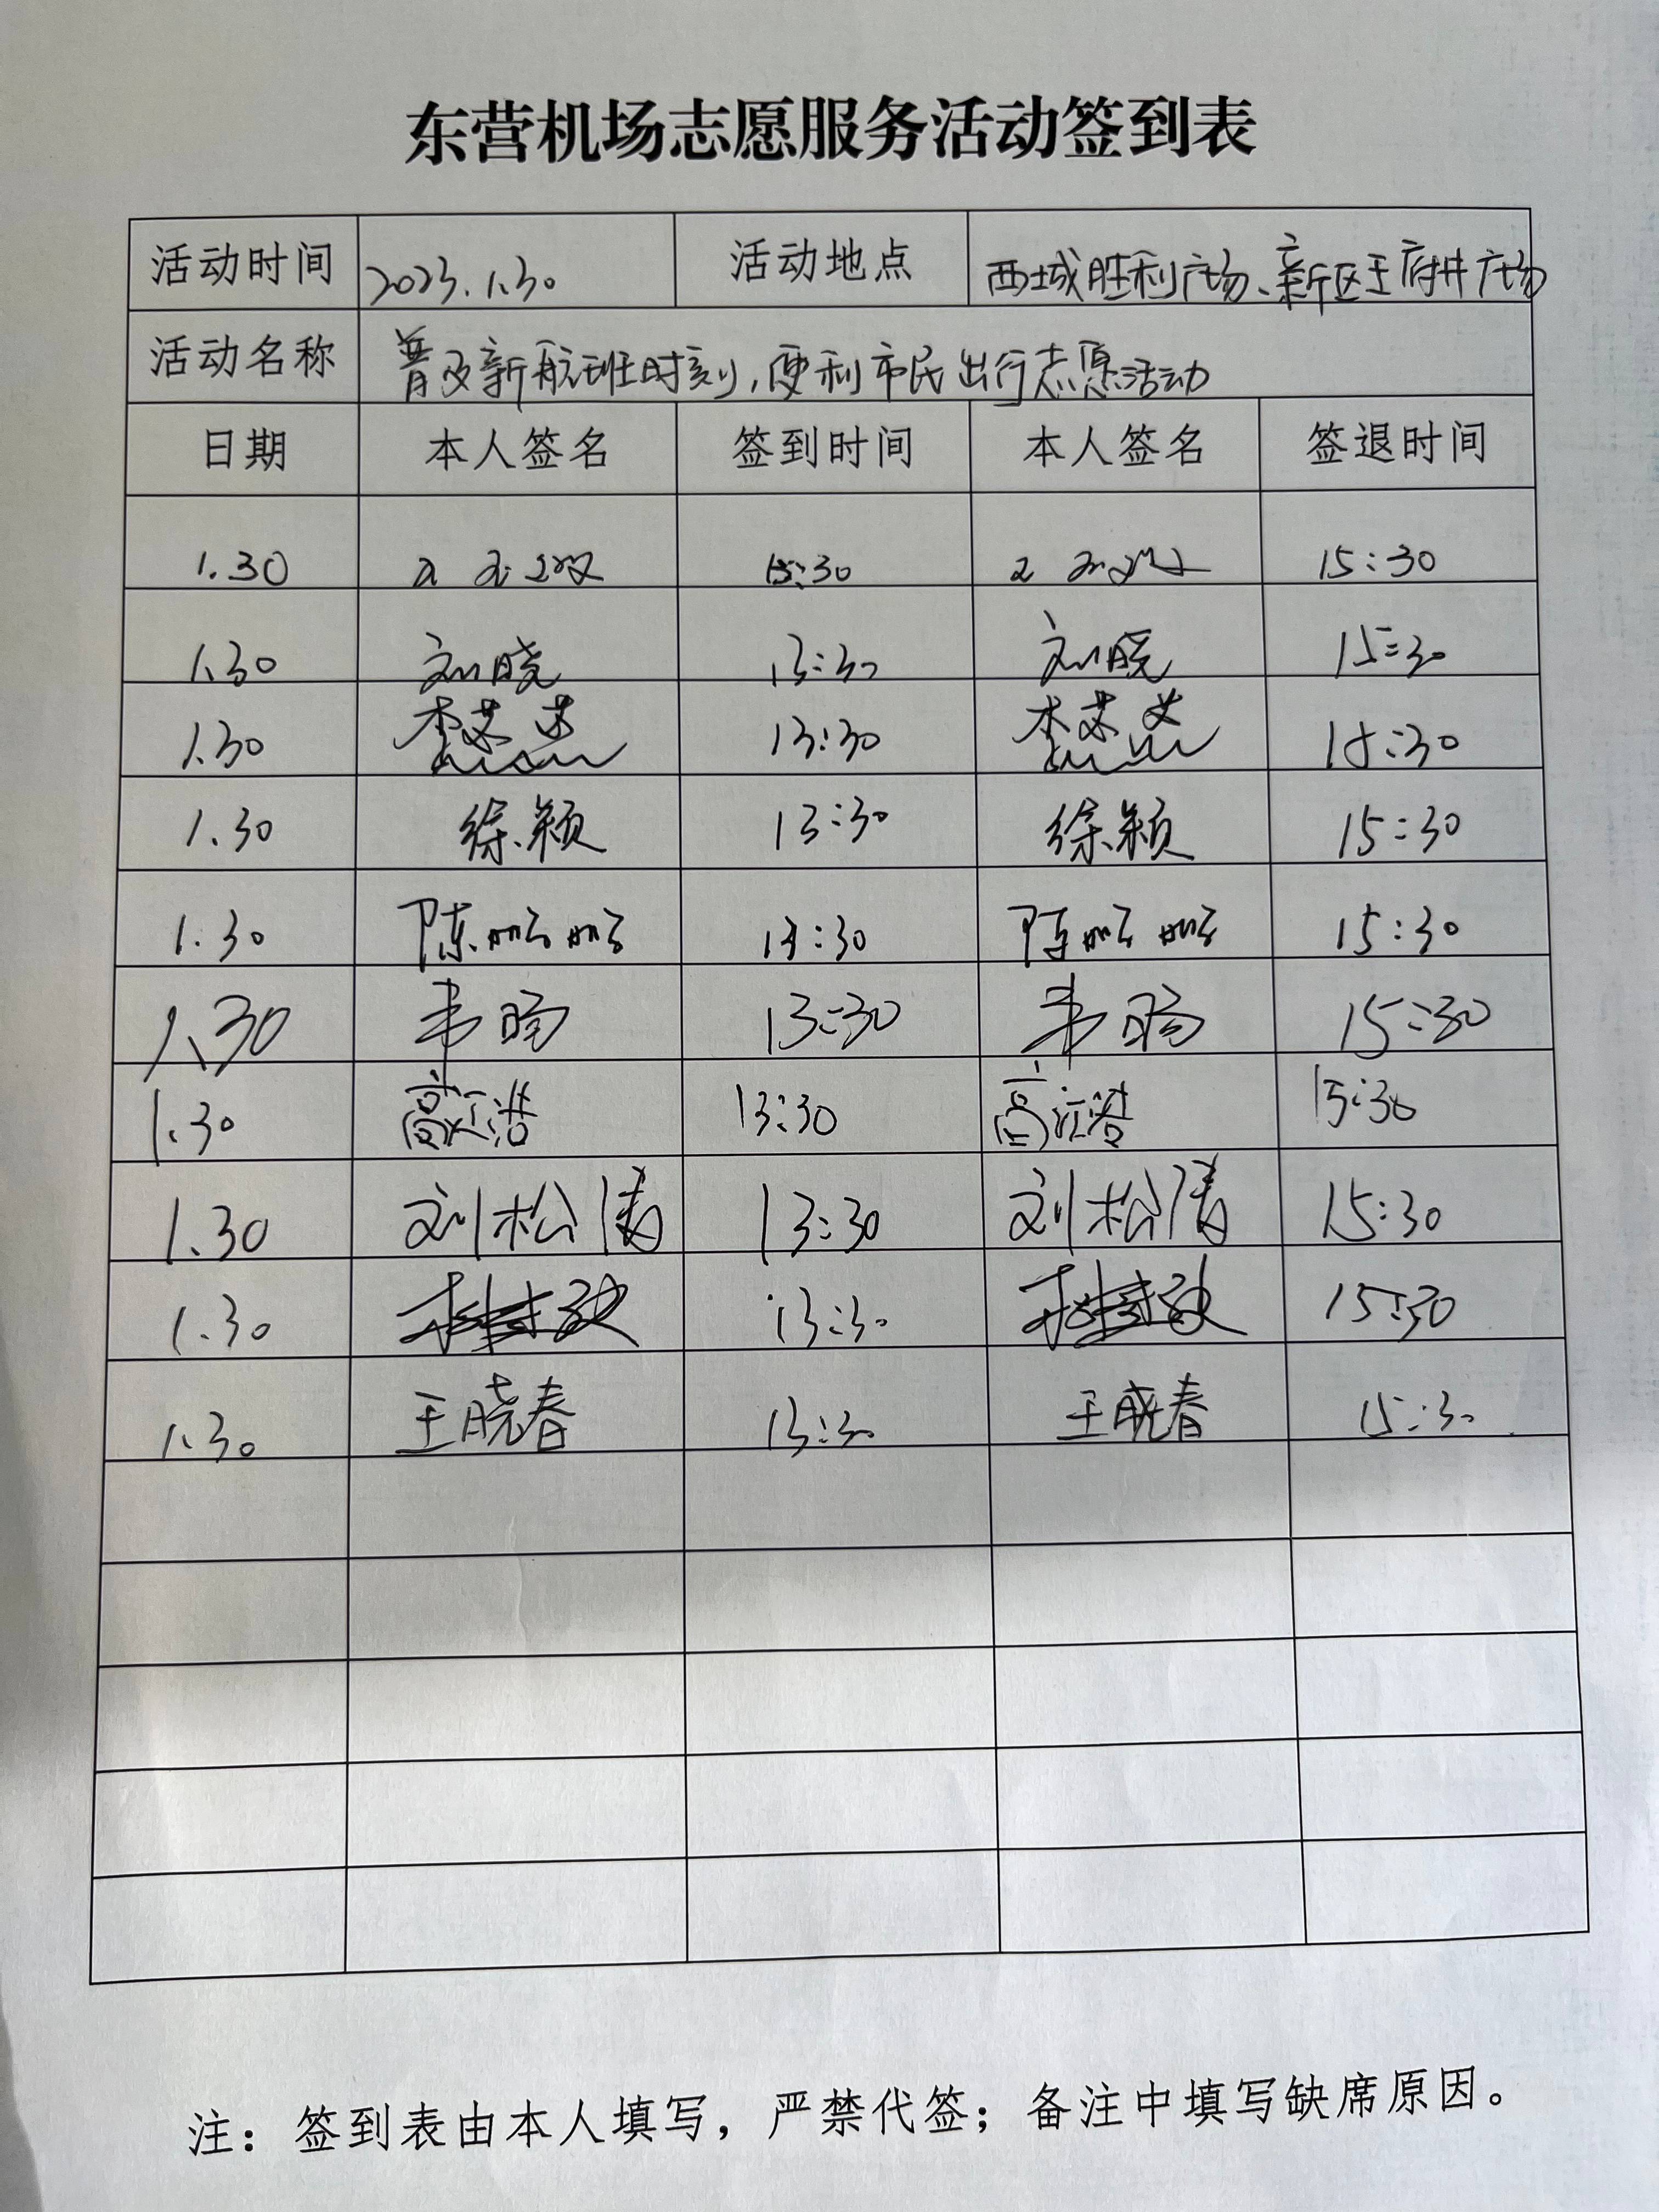 东营机场志愿服务活动签到表
活动时间 2023.1.30 活动地点 西城胜利广场、新区王府井广场
活动名称 普及新航班时刻,便利市民出行志愿活动
日期 本人签名 签到时间 本人签名 签退时间
1.30 13:30 15:30
1.30 刘晓 13:30 刘晓 15:30
1.30 李 13:30 李 15:30
1.30 徐颖 13:30 徐颖 15:30
1.30 陈 13:30 陈 15:30
1.30 韦旸 13:30 韦旸 15:30
1.30 高江浩 13:30 高江浩 15:30
1.30 刘松涛 13:30 刘松涛 15:30
1.30 13:30 15:30
1.30 王晓春 13:30 王晓春 15:30
注：签到表由本人填写，严禁代签；备注中填写缺席原因。